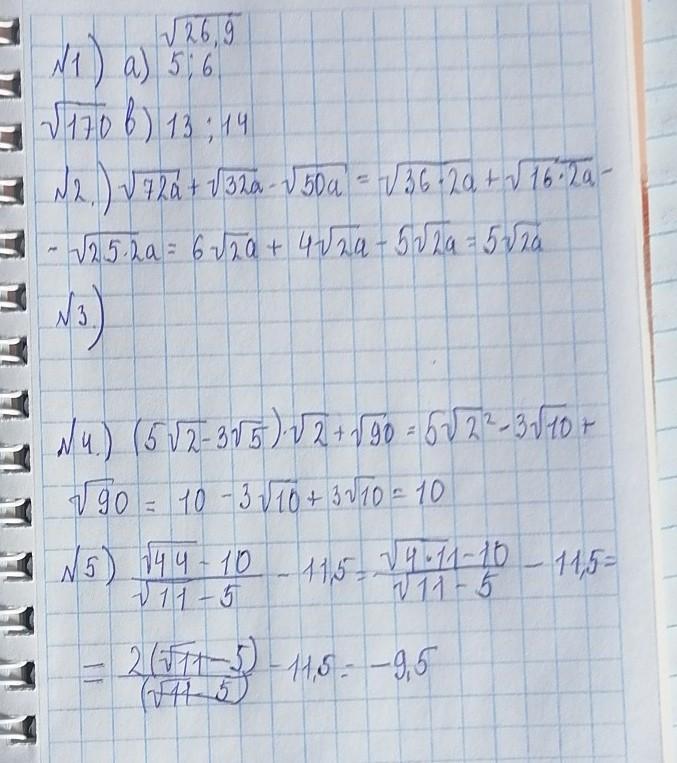 √26,9
№1) а) 5; 6
√170 в) 13; 14
№2.) √72a + √32a - √50a = √36·2a + √16·2a -
- √25·2a = 6√2a + 4√2a - 5√2a = 5√2a
№3.)
№4.) (5√2 - 3√5)·√2 + √90 = 5√2² - 3√10 +
√90 = 10 - 3√10 + 3√10 = 10
№5) (√44 - 10)/(√11 - 5) - 11,5 = (√4·11 - 10)/(√11 - 5) - 11,5 =
= 2(√11 - 5)/(√11 - 5) - 11,5 = -9,5